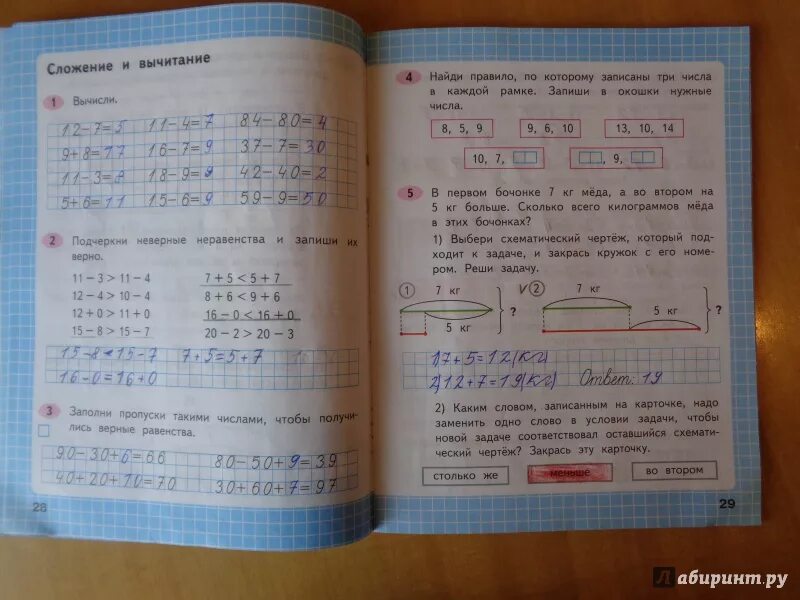 Сложение и вычитание
1 Вычисли.
12-7=5 11-4=7 84-80=4
9+8=17 16-7=9 37-7=30
11-3=8 18-9=9 42-40=2
5+6=11 15-6=9 59-9=50
2 Подчеркни неверные неравенства и запиши их
верно.
11 – 3 > 11 – 4 7 + 5 < 5 + 7
12 – 4 > 10 – 4 8 + 6 < 9 + 6
12 + 0 > 11 + 0 16 – 0 < 16 + 0
15 – 8 > 15 – 7 20 – 2 > 20 – 3
15-8<15-7 7+5=5+7
16-0=16+0
3 Заполни пропуски такими числами, чтобы получи-
лись верные равенства.
90-30+6=66 80-50+9=39
40+20+10=70 30+60+7=97
28
4 Найди правило, по которому записаны три числа
в каждой рамке. Запиши в окошки нужные
числа.
8, 5, 9 9, 6, 10 13, 10, 14
10, 7, , 9,
5 В первом бочонке 7 кг мёда, а во втором на
5 кг больше. Сколько всего килограммов мёда
в этих бочонках?
1) Выбери схематический чертёж, который под-
ходит к задаче, и закрась кружок с его номе-
ром. Реши задачу.
1 7 кг 5 кг ? V 2 7 кг 5 кг ?
1)7+5=12(кг)
2)12+7=19(кг) Ответ: 19
2) Каким словом, записанным на карточке, надо
заменить одно слово в условии задачи, чтобы
новой задаче соответствовал оставшийся схемати-
ческий чертёж? Закрась эту карточку.
столько же меньше во втором
29
Лабиринт.ру